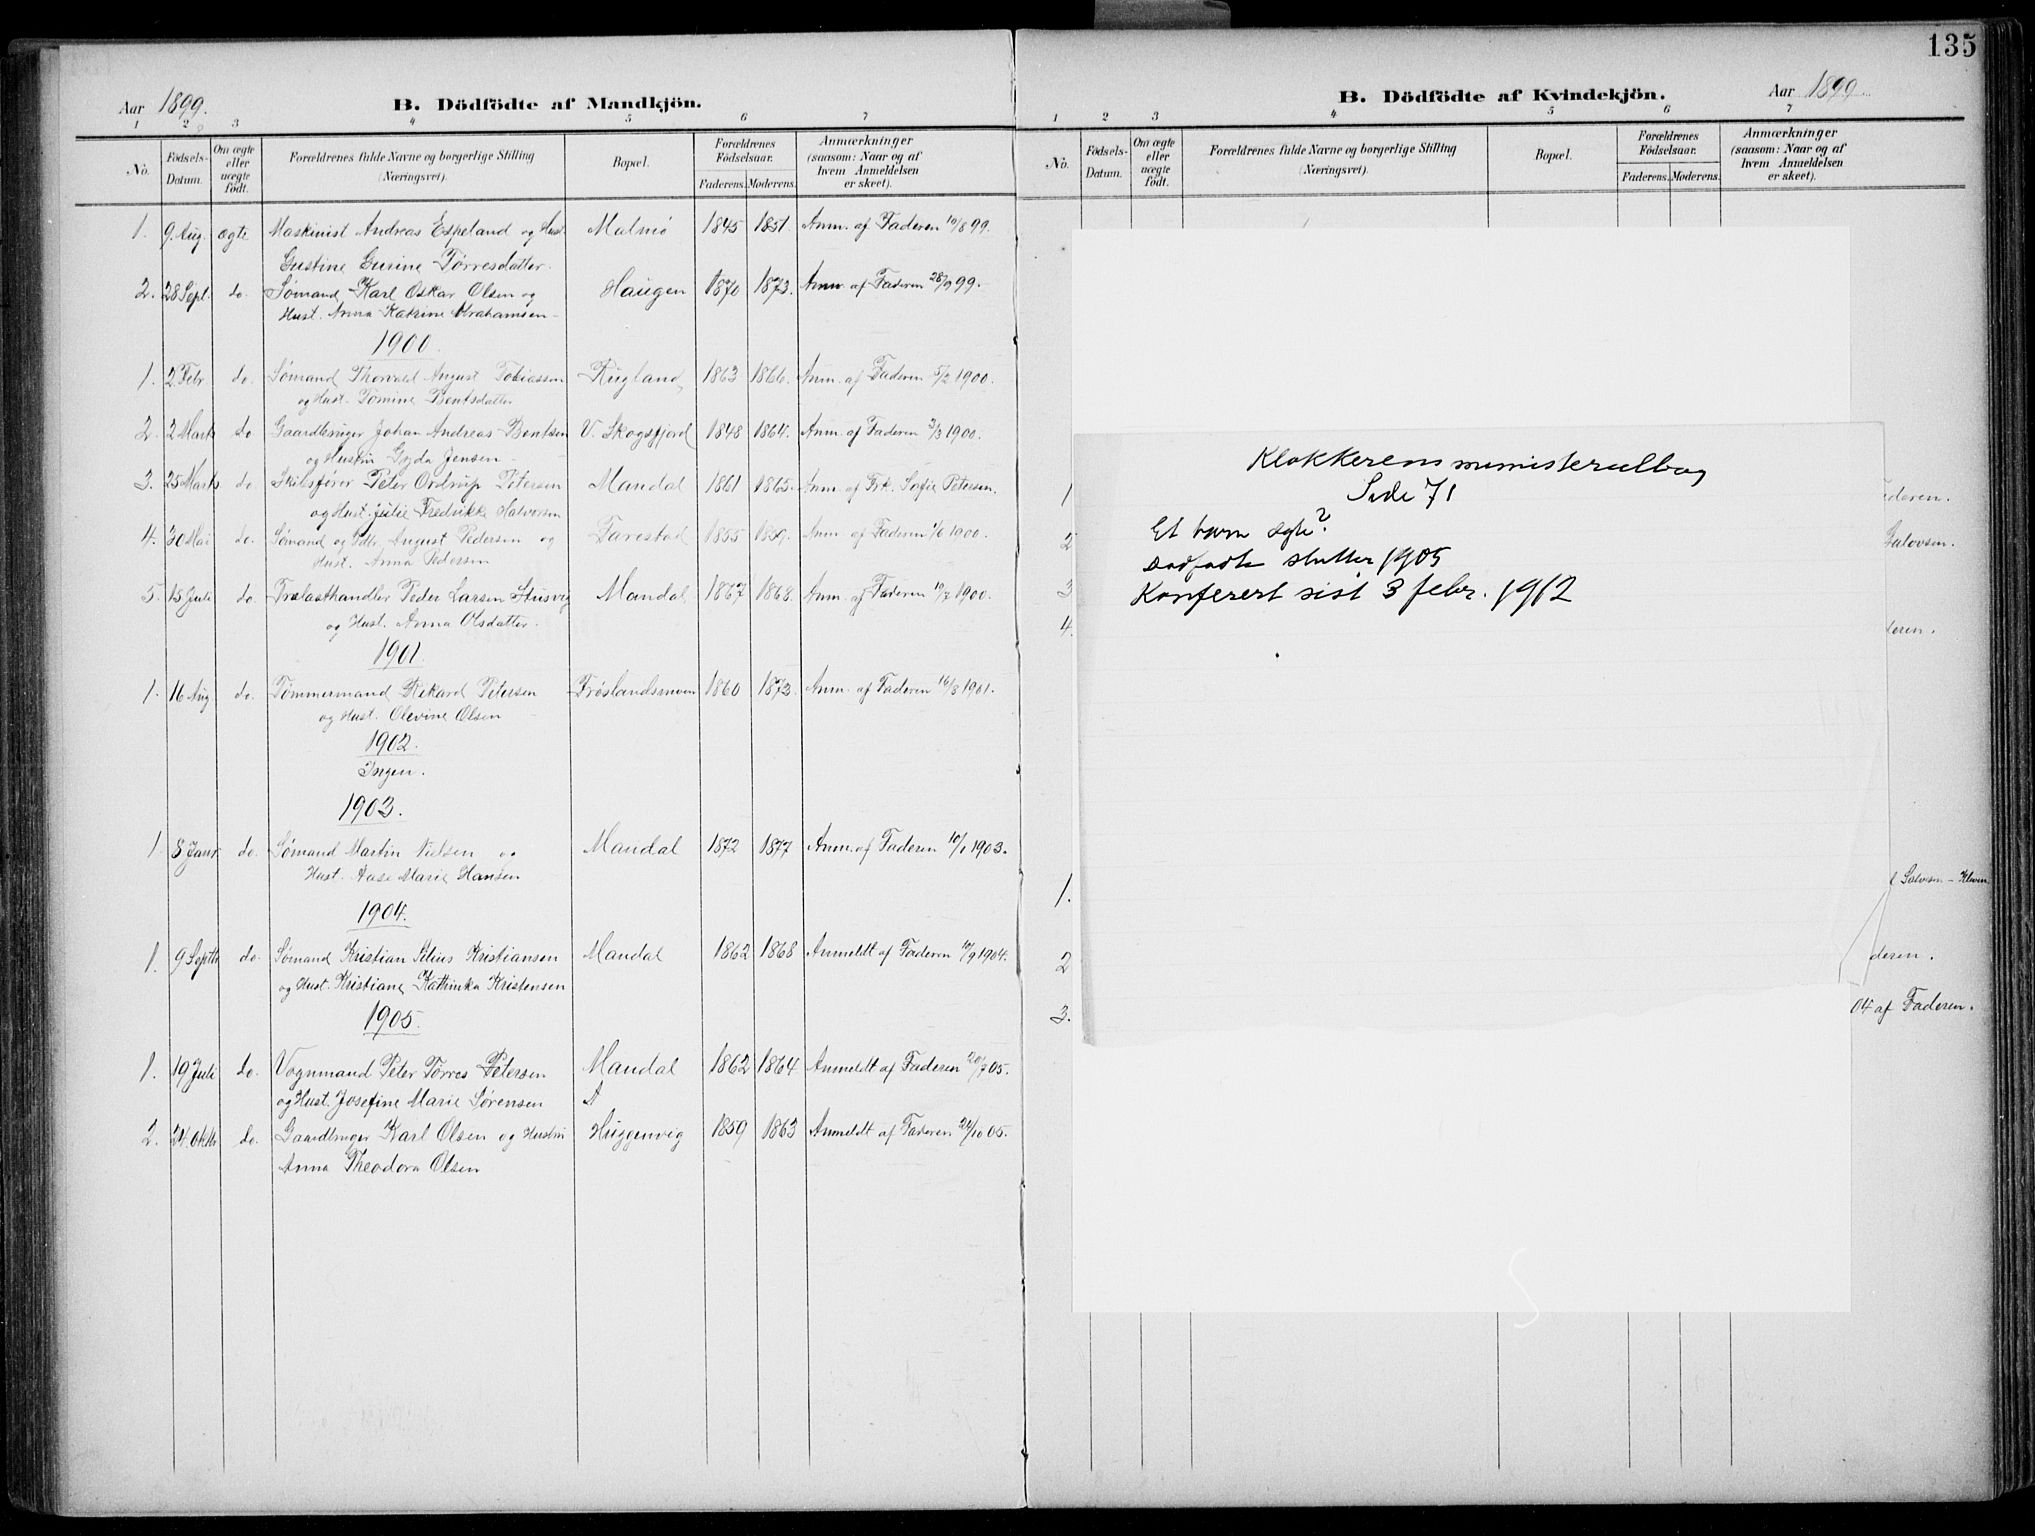 Aar 1899. B. Dödfödte af Mandkjön.
1 2 3 4 5 6 7
No. Födsels-Datum. Om ægte eller uægte födt. Forældrenes fulde Navne og borgerlige Stilling (Næringsvei). Bopæl. Forældrenes Födselsaar. Faderens. Moderens. Anmærkninger (saasom: Naar og af hvem Anmeldelsen er skeet).
1. 9. Aug. ægte Maskinist Andreas Espeland og Hust. Malmø 1845 1851. Anm. af Faderen 10/8 99.
Gustine Gurine Tørresdatter.
2. 28 Sept. do. Sømand Karl Oskar Olsen og Haugen 1870 1873. Anm. af Faderen 28/9 99.
Hust. Anna Katrine Abrahamsen
1900.
1. 2 Febr. do. Sømand Thorvald August Tobiassen Rugland 1863 1866. Anm. af Faderen 5/2 1900.
og Hust. Tomine Bentsdatter
2. 2 Marts do Gaardbruger Johan Andreas Bentsen V. Skogsfjord 1848 1864. Anm. af Faderen 3/3 1900.
og Hustru Gyda Jensen
3. 25 Marts do Skibsfører Peter Ordrup Petersen Mandal 1861 1865. Anm. af Frk. Sofie Petersen.
og Hust. Julie Fredrikke Halvorsen
4. 30 Mai do. Sømand og Gdbr. August Pedersen og Farestad 1855 1859. Anm. af Faderen 1/6 1900.
Hust. Anna Pedersen
5. 15 Juli do. Trælasthandler Peder Larsen Husvig Mandal 1867 1868. Anm. af Faderen /7 1900.
og Hust. Anna Olsdatter.
1901.
1. 16 Aug. do. Tømmermand Rikard Petersen Frøslandsmoen 1860 1873. Anm. af Faderen 16/8 1901.
og Hust. Olevine Olsen
1902.
Ingen.
1903.
1. 8 Janr. do. Sømand Martin Nielsen og Mandal 1872 1877 Anm. af Faderen 10/1 1903.
Hust. Aase Marie Hansen
1904.
1. 9 Septbr do. Sømand Kristian Silius Kristiansen Mandal 1862 1868 Anmeldt af Faderen 10/9 1904.
og Hust. Kristiane Kathinka Kristensen
1905.
1. 19 Juli do. Vognmand Peter Tørres Petersen Mandal 1862 1864 Anmeldt af Faderen 20/7 05.
og Hust. Josefine Marie Sørensen
2. 24. Oktbr do. Gaardbruger Karl Olsen og Hustru Huggenvig 1859 1863 Anmeldt af Faderen 24/10 05.
Anna Theodora Olsen
135
B. Dödfödte af Kvindekjön. Aar 1899
1 2 3 4 5 6 7
No. Födsels-Datum. Om ægte eller uægte födt. Forældrenes fulde Navne og borgerlige Stilling (Næringsvei). Bopæl. Forældrenes Födselsaar. Faderens. Moderens. Anmærkninger (saasom: Naar og af hvem Anmeldelsen er skeet).
Klokkerens ministerialbog
Side 71
Et barn ægte?
Dødfødte slutter 1905
Konferert sist 3 febr. 1912
1 aderen.
2 Salvesen.
3
4. deren.
1. Salvesen - Kleven
2 deren.
3. 04 af Faderen.